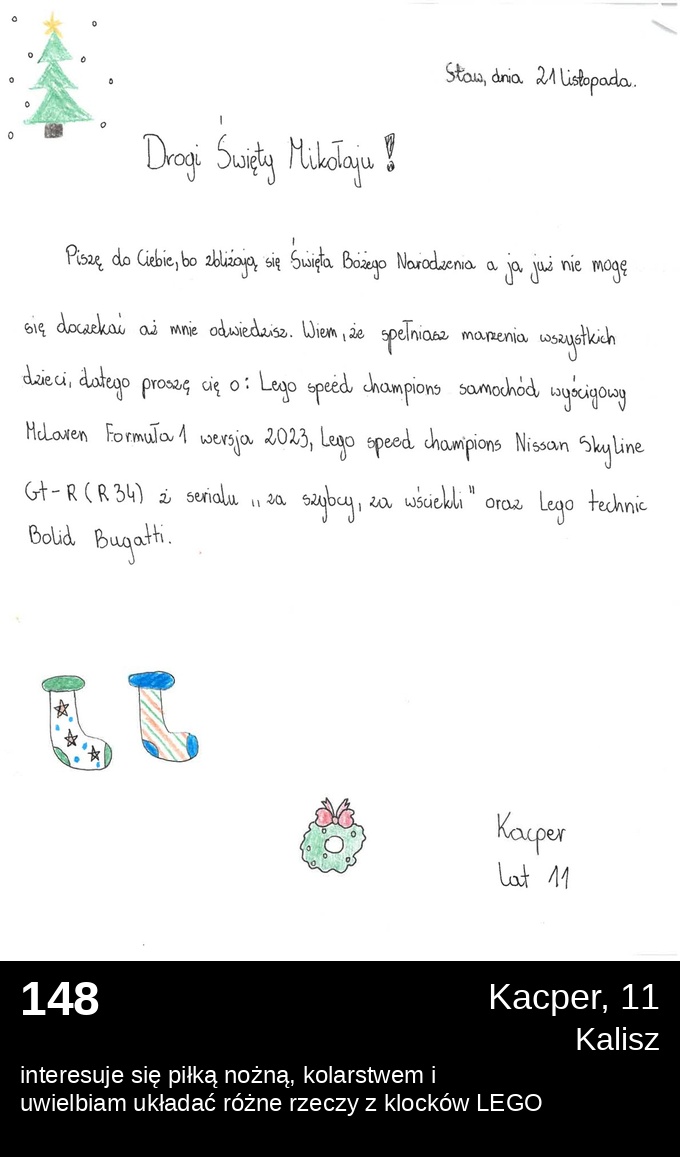 Staw, dnia 21 listopada.
Drogi Święty Mikołaju!
Piszę do Ciebie, bo zbliżają się Święta Bożego Narodzenia a ja już nie mogę
się doczekać aż mnie odwiedzisz. Wiem, że spełniasz marzenia wszystkich
dzieci, dlatego proszę cię o: Lego speed champions samochód wyścigowy
McLaren Formuła 1 wersja 2023, Lego speed champions Nissan Skyline
Gt-R (R34) z serialu „za szybcy, za wściekli" oraz Lego technic
Bolid Bugatti.
Kacper
Lat 11
148
Kacper, 11
Kalisz
interesuje się piłką nożną, kolarstwem i
uwielbiam układać różne rzeczy z klocków LEGO